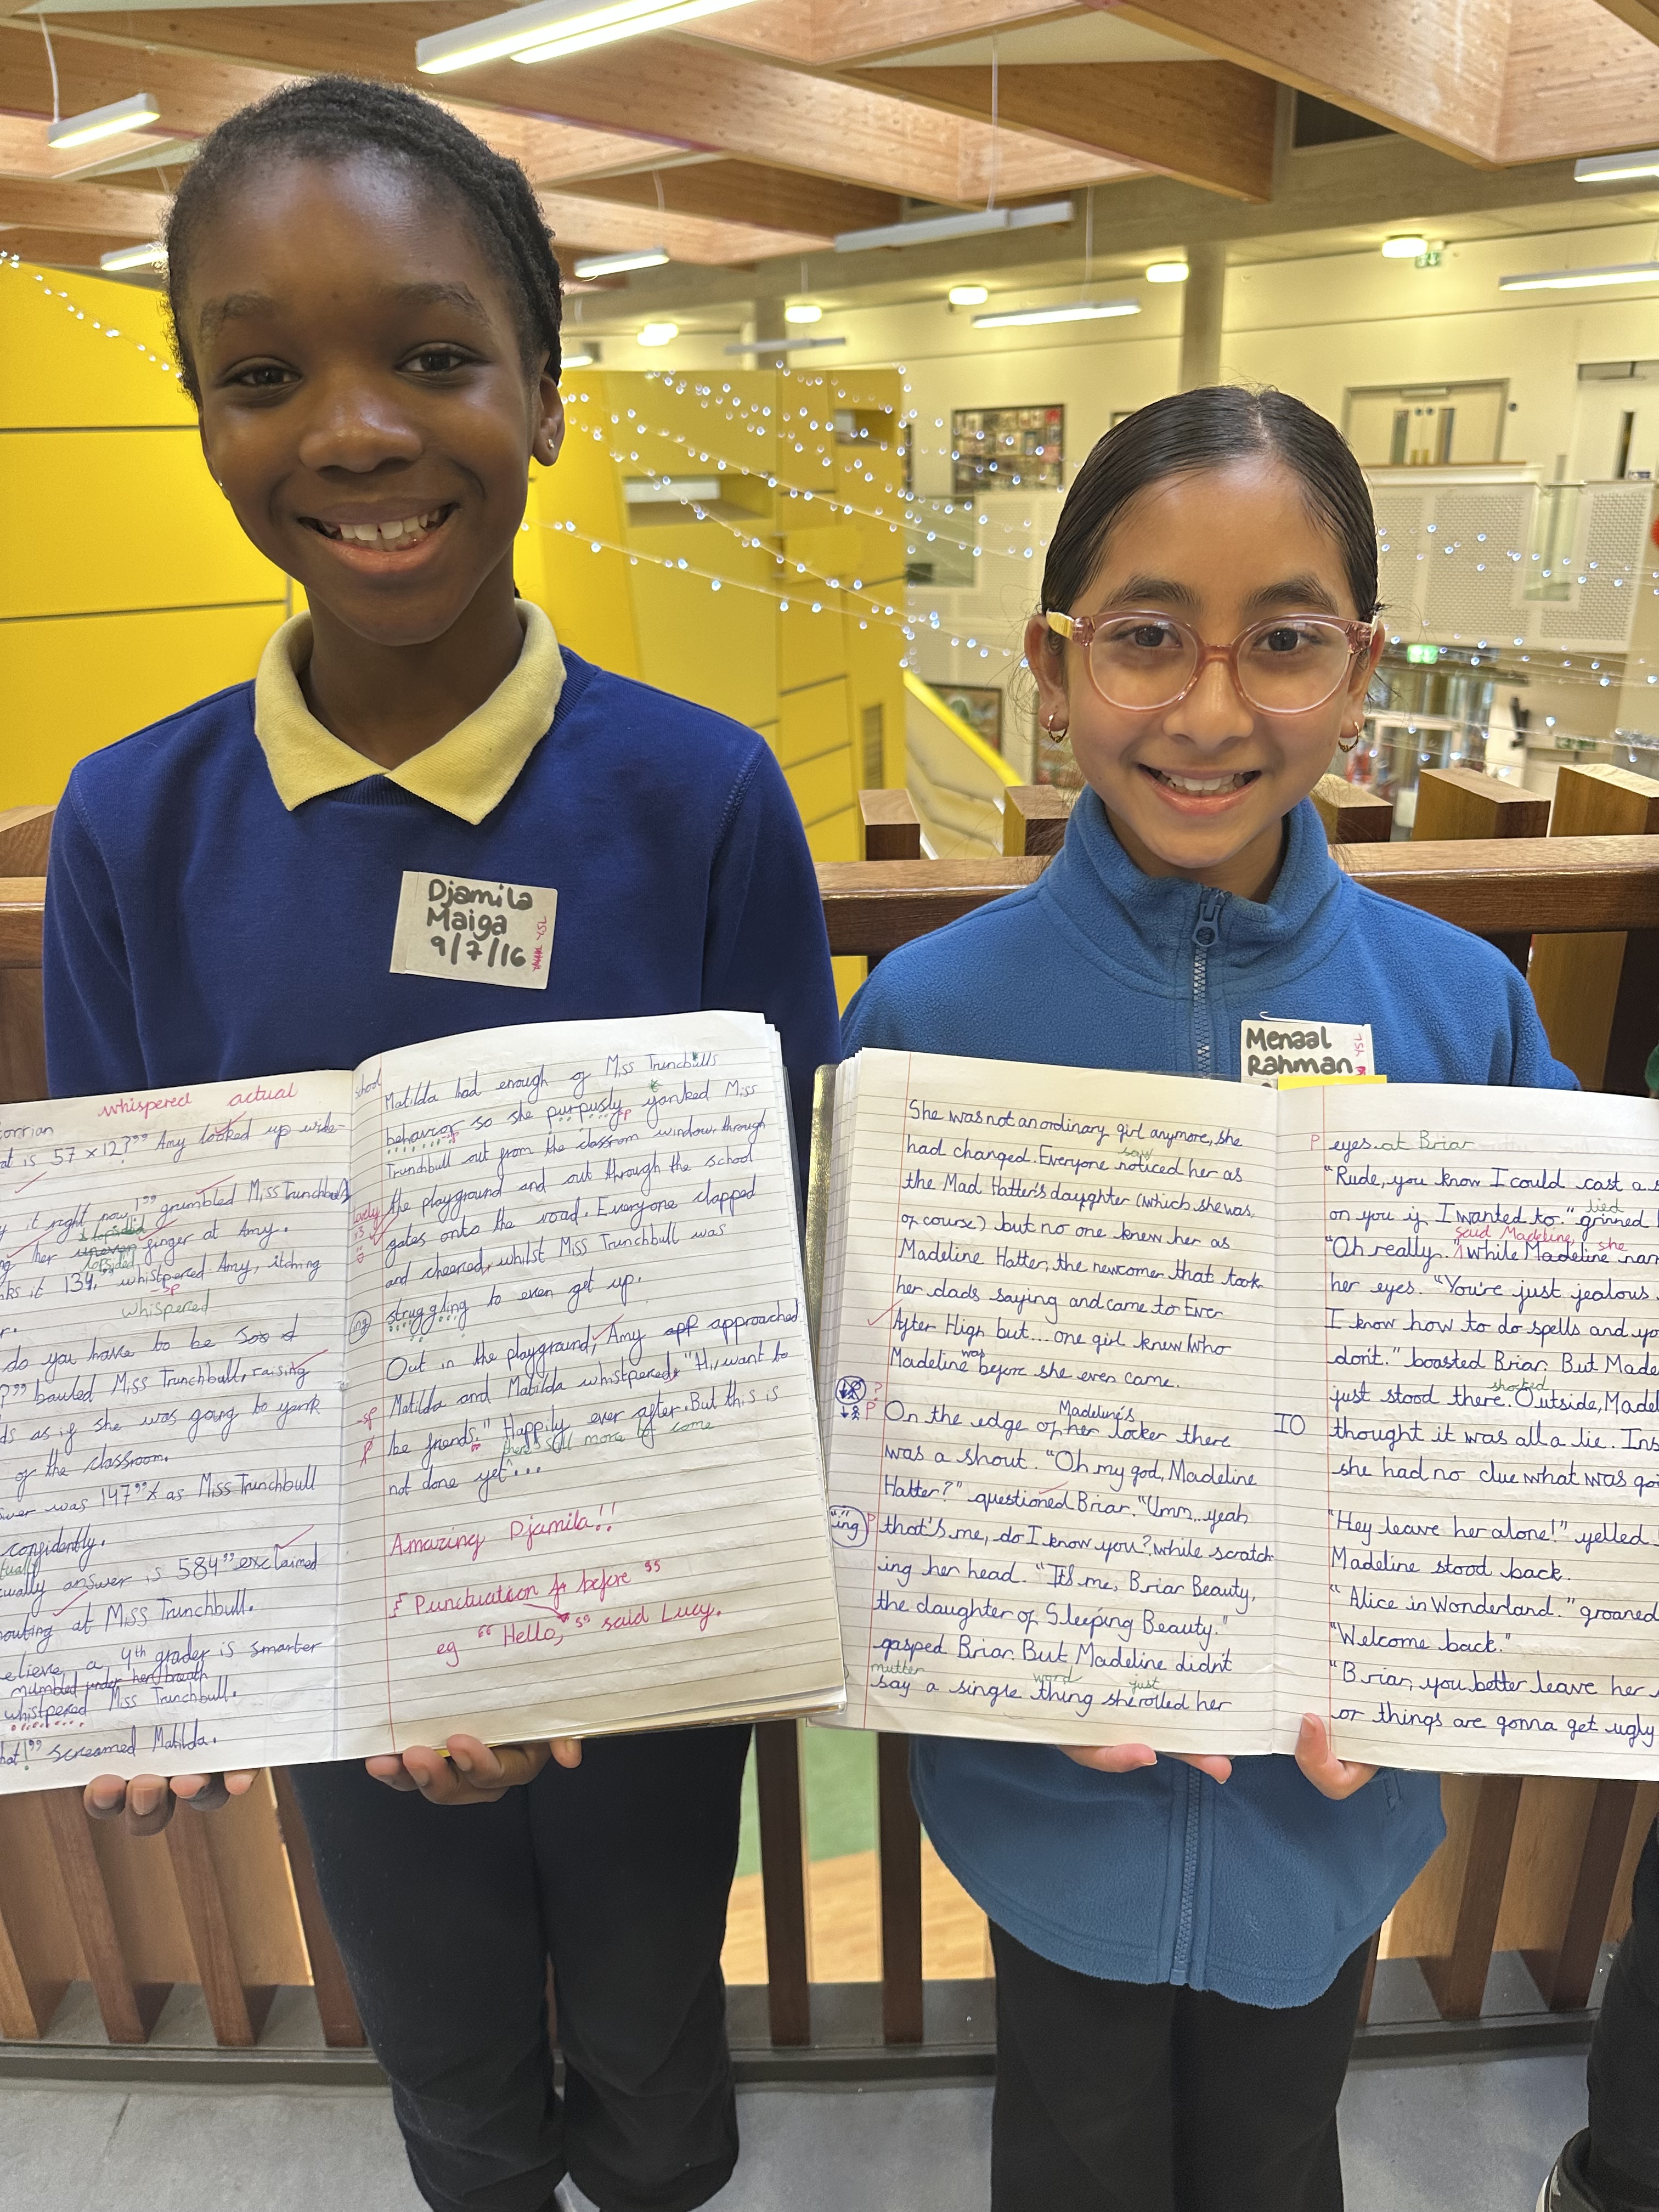 Djamila
Maiga
9/7/16
Y5L
Menaal
Rahman
Y5L
whispered actual
at is 57 x 12?" Amy looked up wide-
it right now!" grumbled Miss Trunchbull
her uneven finger at Amy.
lopsided
it 134." whistpered Amy, itching
-sp
whispered
do you have to be so
bauled Miss Trunchbull, raising
as if she was going to yank
of the classroom.
was 147" as Miss Trunchbull
confidently.
answer is 584" exclaimed
at Miss Trunchbull.
a 4th grader is smarter
mumbled under her breath
whistpered Miss Trunchbull.
hat!" screamed Matilda.
school
Matilda had enough of Miss Trunchbulls
behavior so she purpusly yanked Miss
sp
Trunchbull out from the classrom window, through
the playground and out through the school
gates onto the road. Everyone clapped
and cheered, whilst Miss Trunchbull was
struggling to even get up.
Out in the playground, Amy app approached
Matilda and Matilda whistpered, "Hi, want to
-sp
be friends." Happily ever after. But this is
there's still more to come
not done yet...
Amazing Djamila!!
Punctuation for before "
eg "Hello," said Lucy.
She was not an ordinary girl anymore, she
had changed. Everyone noticed her as
saw
the Mad Hatter's dayghter (which she was,
of course) but no one knew her as
Madeline Hatter, the newcomer that took
her dads saying and came to Ever
After High but... one girl knew who
Madeline was before she even came.
?
P
On the edge of her locker there
Madeline's
was a shout. "Oh my god, Madeline
Hatter?" questioned Briar. "Umm, yeah
"ing P
that's me, do I know you?, while scratch-
ing her head. "It's me, Briar Beauty,
the daughter of Sleeping Beauty."
gasped Briar. But Madeline didn't
mutter word just
say a single thing she rolled her
P eyes at Briar
"Rude, you know I could cast a s
on you if I wanted to." grinned
lied
said Madeline, she
"Oh really." while Madeline nar
her eyes. "You're just jealous
I know how to do spells and yo
don't." boasted Briar. But Made
just stood there. Outside, Madel
shocked
IO thought it was all a lie. Ins
she had no clue what was goi
"Hey leave her alone!" yelled
Madeline stood back.
"Alice in Wonderland." groaned
"Welcome back."
"Briar, you better leave her
or things are gonna get ugly